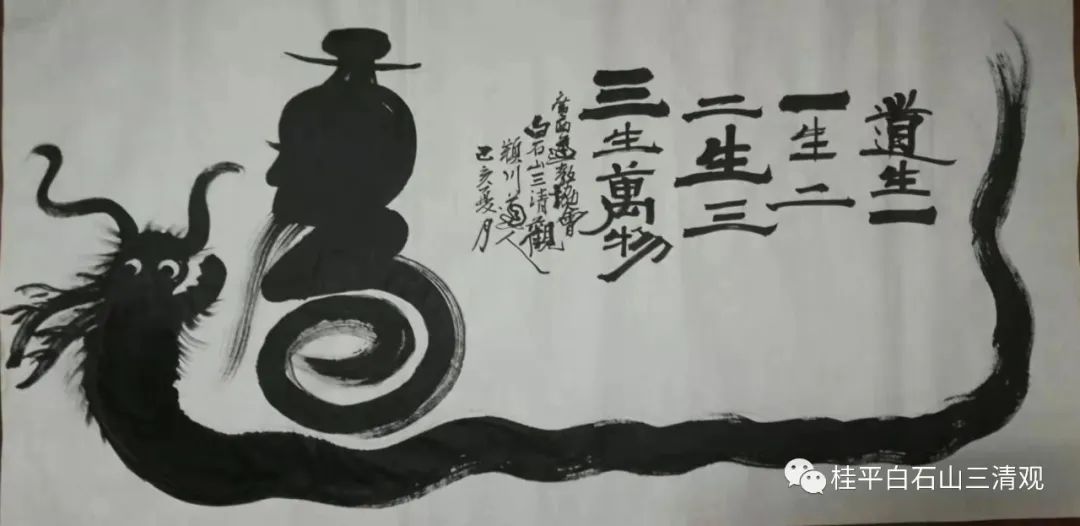 道生一
一生二
二生三
三生萬物
廣西道教協會
白石山三清觀
潁川道人
己亥夏月
桂平白石山三清观